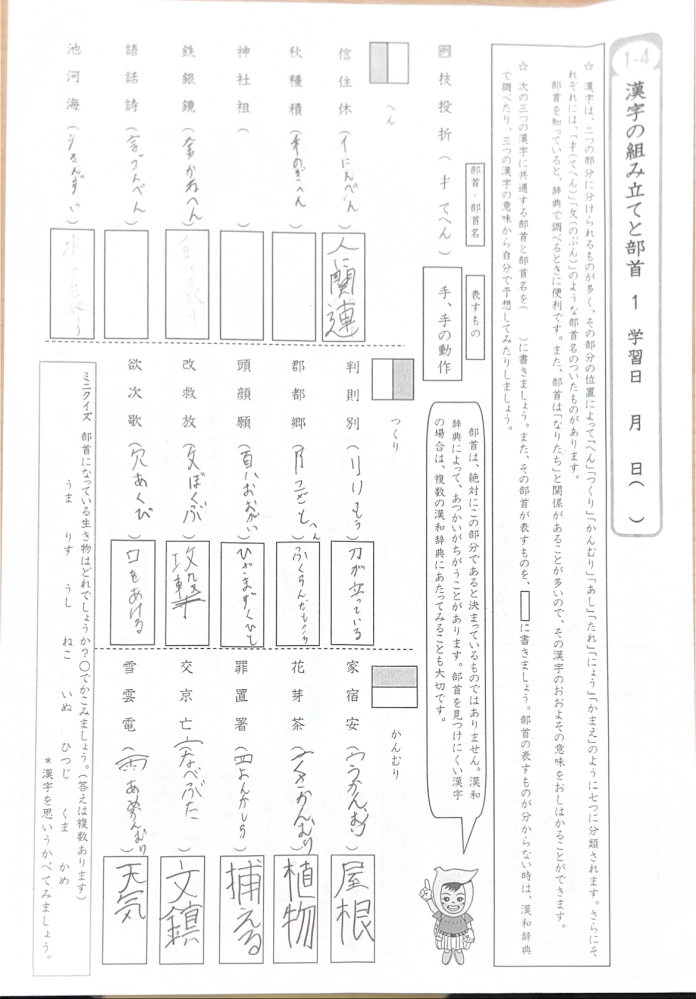 1-4
漢字の組み立てと部首 1 学習日 月 日( )
☆ 漢字は、二つの部分に分けられるものが多く、その部分の位置によって「へん」「つくり」「かんむり」「あし」「たれ」「にょう」「かまえ」のように七つに分類されます。さらにそ
れぞれには、「扌(てへん)」「攵(のぶん)」のような部首名のついたものがあります。
部首を知っていると、辞典で調べるときに便利です。また、部首は「なりたち」と関係があることが多いので、その漢字のおおよその意味をおしはかることができます。
☆ 次の三つの漢字に共通する部首と部首名を( )に書きましょう。また、その部首が表すものを、□に書きましょう。部首の表すものが分からない時は、漢和辞典
で調べたり、三つの漢字の意味から自分で予想してみたりしましょう。
部首・部首名
表すもの
例 技 投 折 (扌 てへん) 手、手の動作
部首は、絶対にこの部分であると決まっているものではありません。漢和
辞典によって、あつかいがちがうことがあります。部首を見つけにくい漢字
の場合は、複数の漢和辞典にあたってみることも大切です。
へん
信 住 休 (イにんべん) 人に関連
秋 種 積 (のぎへん)
神 社 祖 ( )
鉄 銀 鏡 (金かねへん)
語 話 詩 (言ごんべん)
池 河 海 (氵さんずい)
つくり
判 則 別 (刂りっとう) 刀が立っている
郡 都 郷
頭 顔 願 (頁おおがい) ひざまずくひと
改 救 放 (攵ぼくぶ) 攻撃
欲 次 歌 (欠あくび) 口をあける
かんむり
家 宿 安 (宀うかんむり) 屋根
花 芽 茶 (艹くさかんむり) 植物
罪 置 署 (罒よんかしら) 捕える
交 京 亡 (亠なべぶた) 文鎮
雪 雲 電 (雨あめかんむり) 天気
ミニクイズ 部首になっている生き物はどれでしょうか?○でかこみましょう。(答えは複数あります)
うま りす うし ねこ いぬ ひつじ くま かめ
*漢字を思いうかべてみましょう。